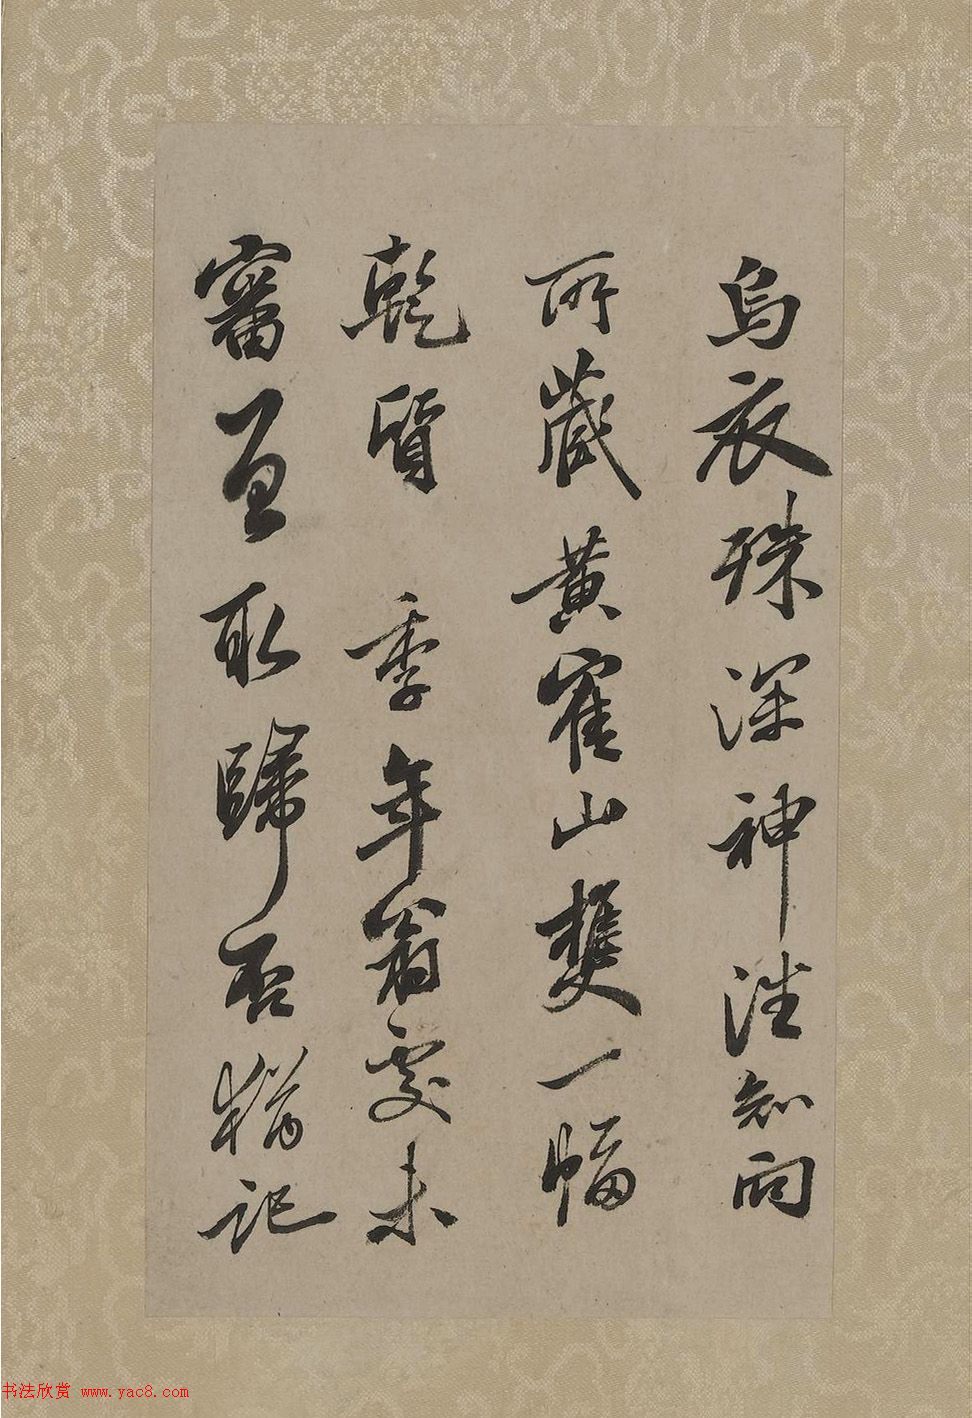 烏衣殊深神注知向
所藏黃寉山樵一幅
乾質季年翁處未
審互取歸否猶記
书法欣赏 www.yac8.com